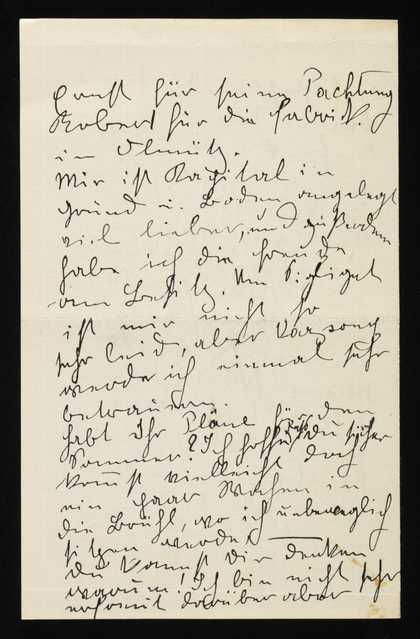 Ernst für seine Pachtung
Robert für die Fabrik
in Olmütz.
Mir ist Kapital in
Grund u. Boden angelegt
viel lieber, und außerdem
habe ich die Freude
am Besitz. Um
ist mir nicht so
sehr leid, aber Varsony
werde ich einmal sehr
betrauern.
Habt Ihr Pläne für den
Sommer? Ich hoffe, daß du sicher
kommst vielleicht doch
ein paar Wochen in
die Brühl, wo ich unbeweglich
sitzen werde.
Du kannst dir denken
warum! Ich bin nicht sehr
erfreut darüber aber